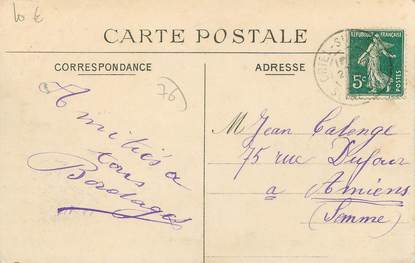 10 €
CARTE POSTALE
CORRESPONDANCE
ADRESSE
RÉPUBLIQUE FRANÇAISE
5c
POSTES
76
Amitiés à
tous
Bordages
M Jean Calenge
75 rue Dufour
a Amiens
(Somme)